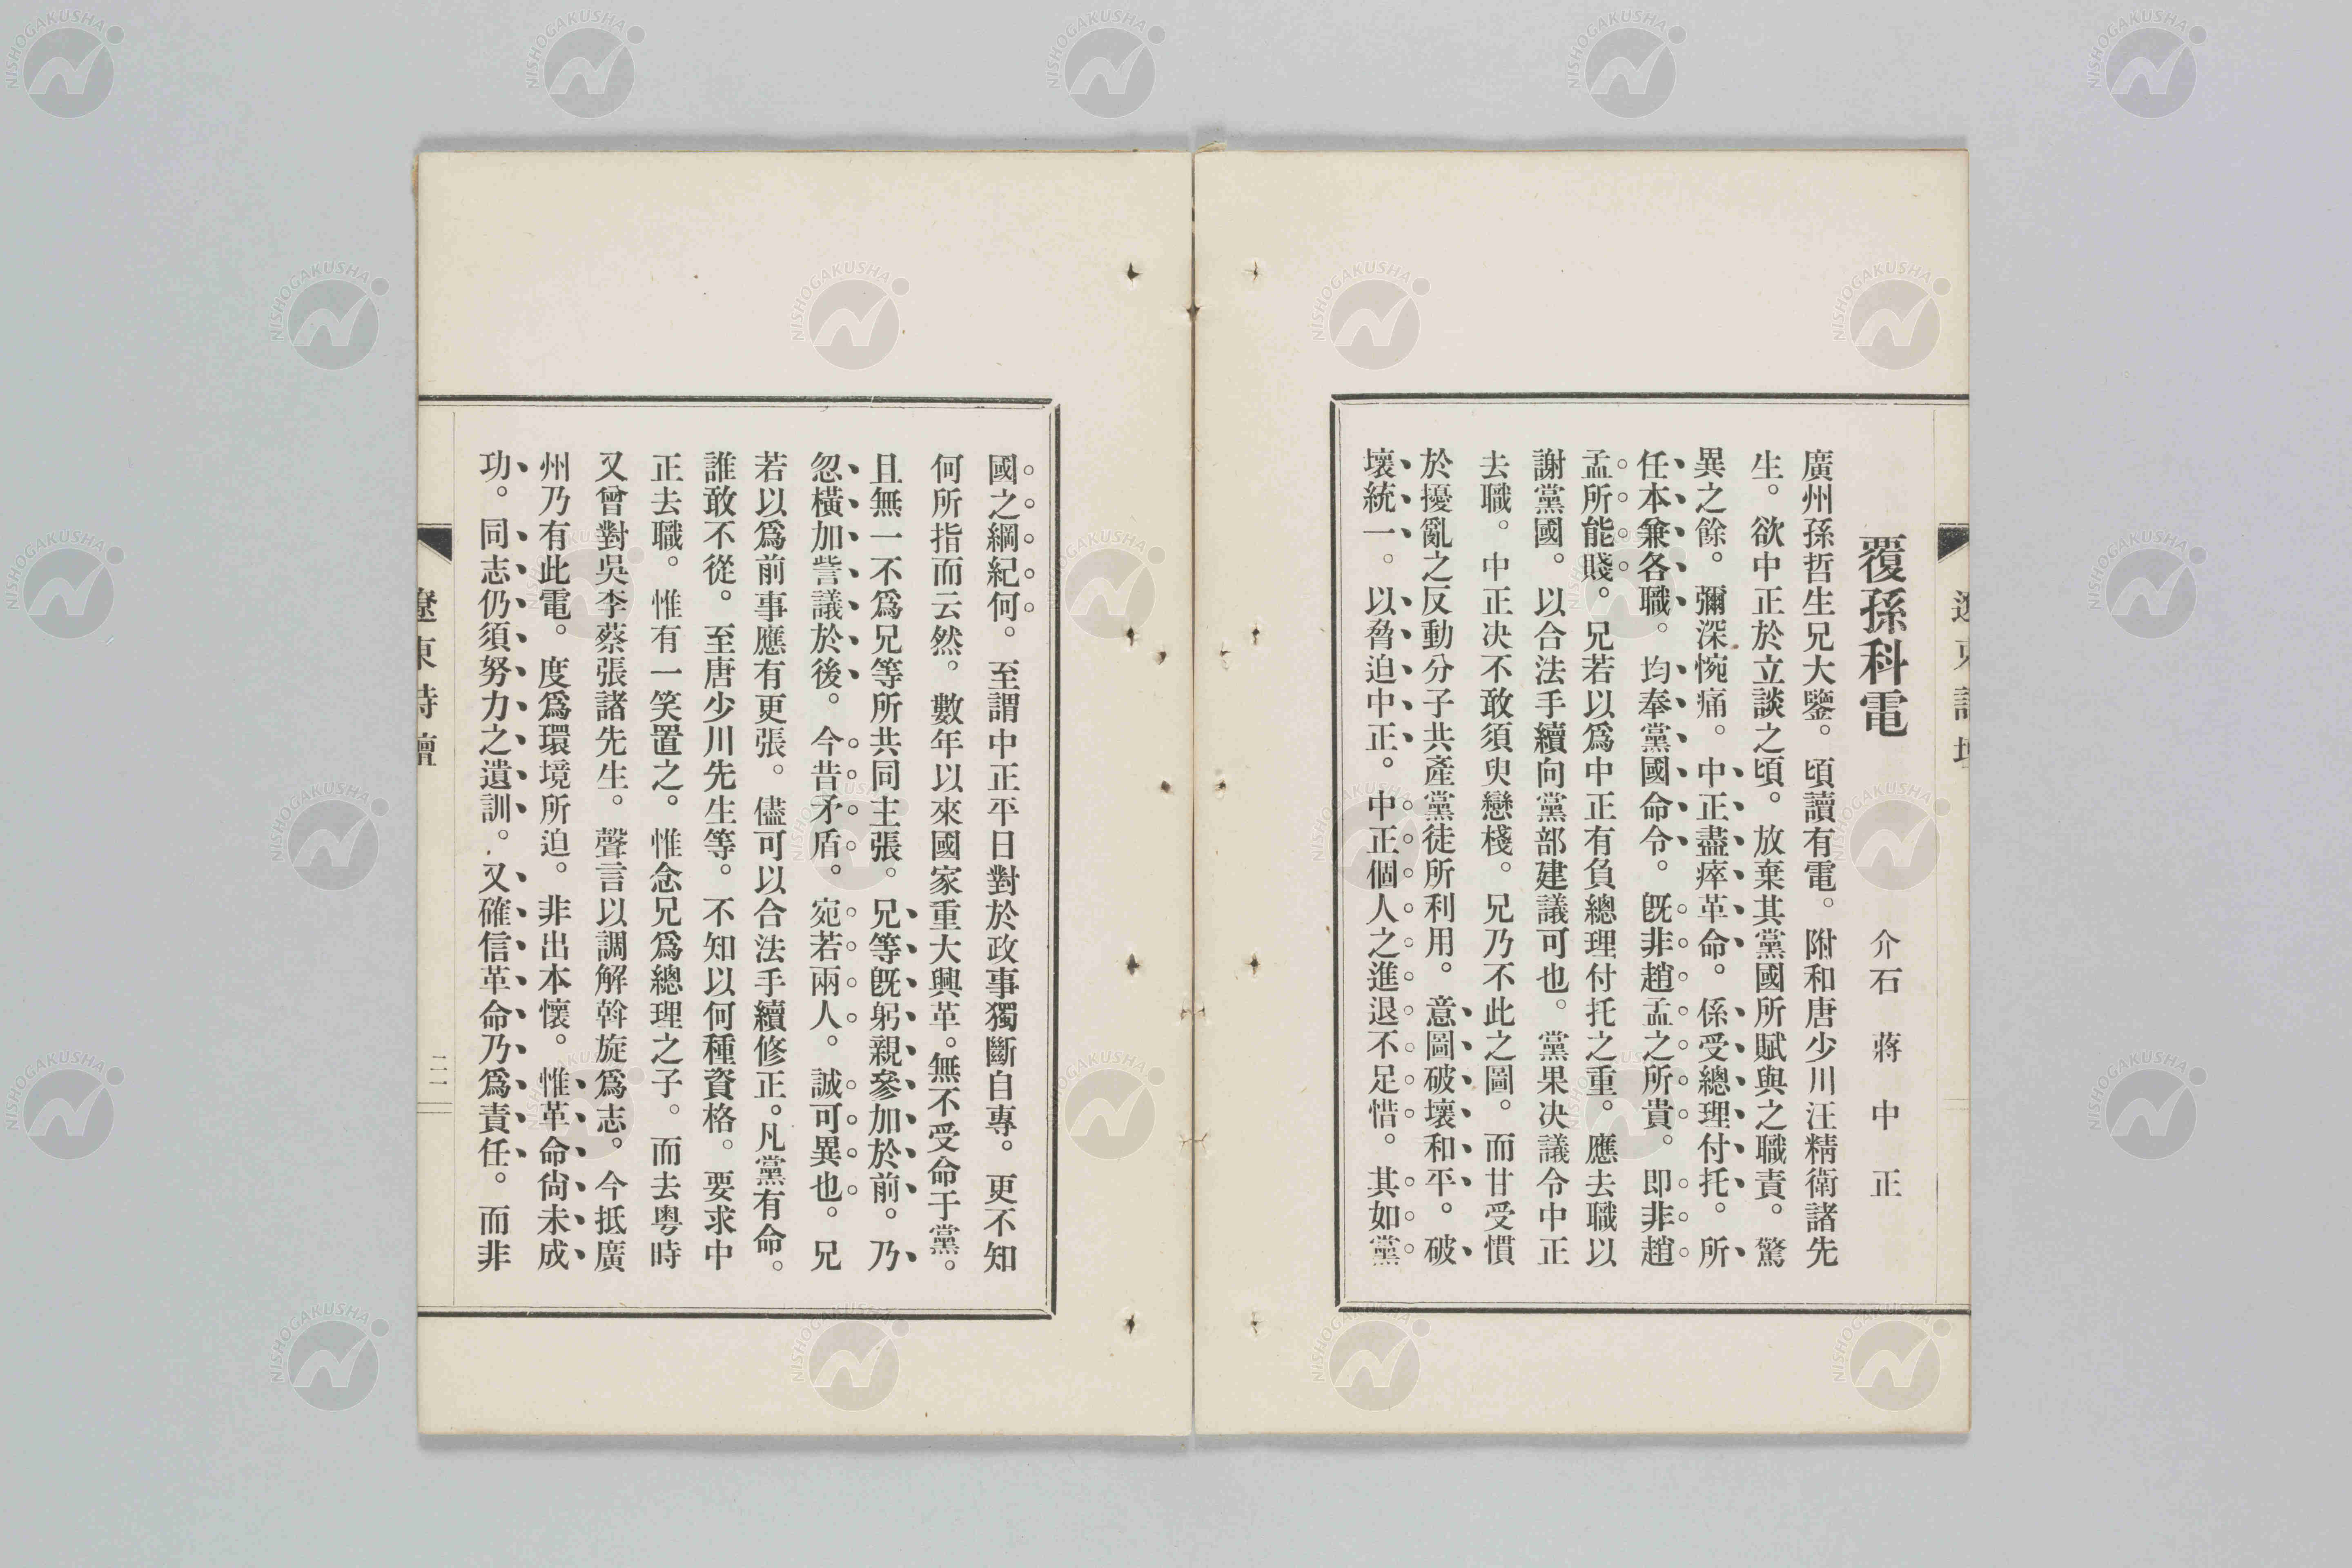 覆孫科電 介石 蔣中正
廣州孫哲生兄大鑒。頃讀有電。附和唐少川汪精衛諸先
生。欲中正於立談之頃。放棄其黨國所賦與之職責。驚
異之餘。彌深惋痛。中正盡瘁革命。係受總理付托。所
任本兼各職。均奉黨國命令。旣非趙孟之所貴。即非趙
孟所能賤。兄若以爲中正有負總理付托之重。應去職以
謝黨國。以合法手續向黨部建議可也。黨果決議令中正
去職。中正決不敢須臾戀棧。兄乃不此之圖。而甘受慣
於擾亂之反動分子共產黨徒所利用。意圖破壞和平。破
壞統一。以脅迫中正。中正個人之進退不足惜。其如黨
國之綱紀何。至謂中正平日對於政事獨斷自專。更不知
何所指而云然。數年以來國家重大興革。無不受命于黨。
且無一不爲兄等所共同主張。兄等旣躬親參加於前。乃
忽橫加訾議於後。今昔矛盾。宛若兩人。誠可異也。兄
若以爲前事應有更張。儘可以合法手續修正。凡黨有命。
誰敢不從。至唐少川先生等。不知以何種資格。要求中
正去職。惟有一笑置之。惟念兄爲總理之子。而去粵時
又曾對吳李蔡張諸先生。聲言以調解斡旋爲志。今抵廣
州乃有此電。度爲環境所迫。非出本懷。惟革命尙未成
功。同志仍須努力之遺訓。又確信革命乃爲責任。而非
遼東詩壇
二一
NISHOGAKUSHA